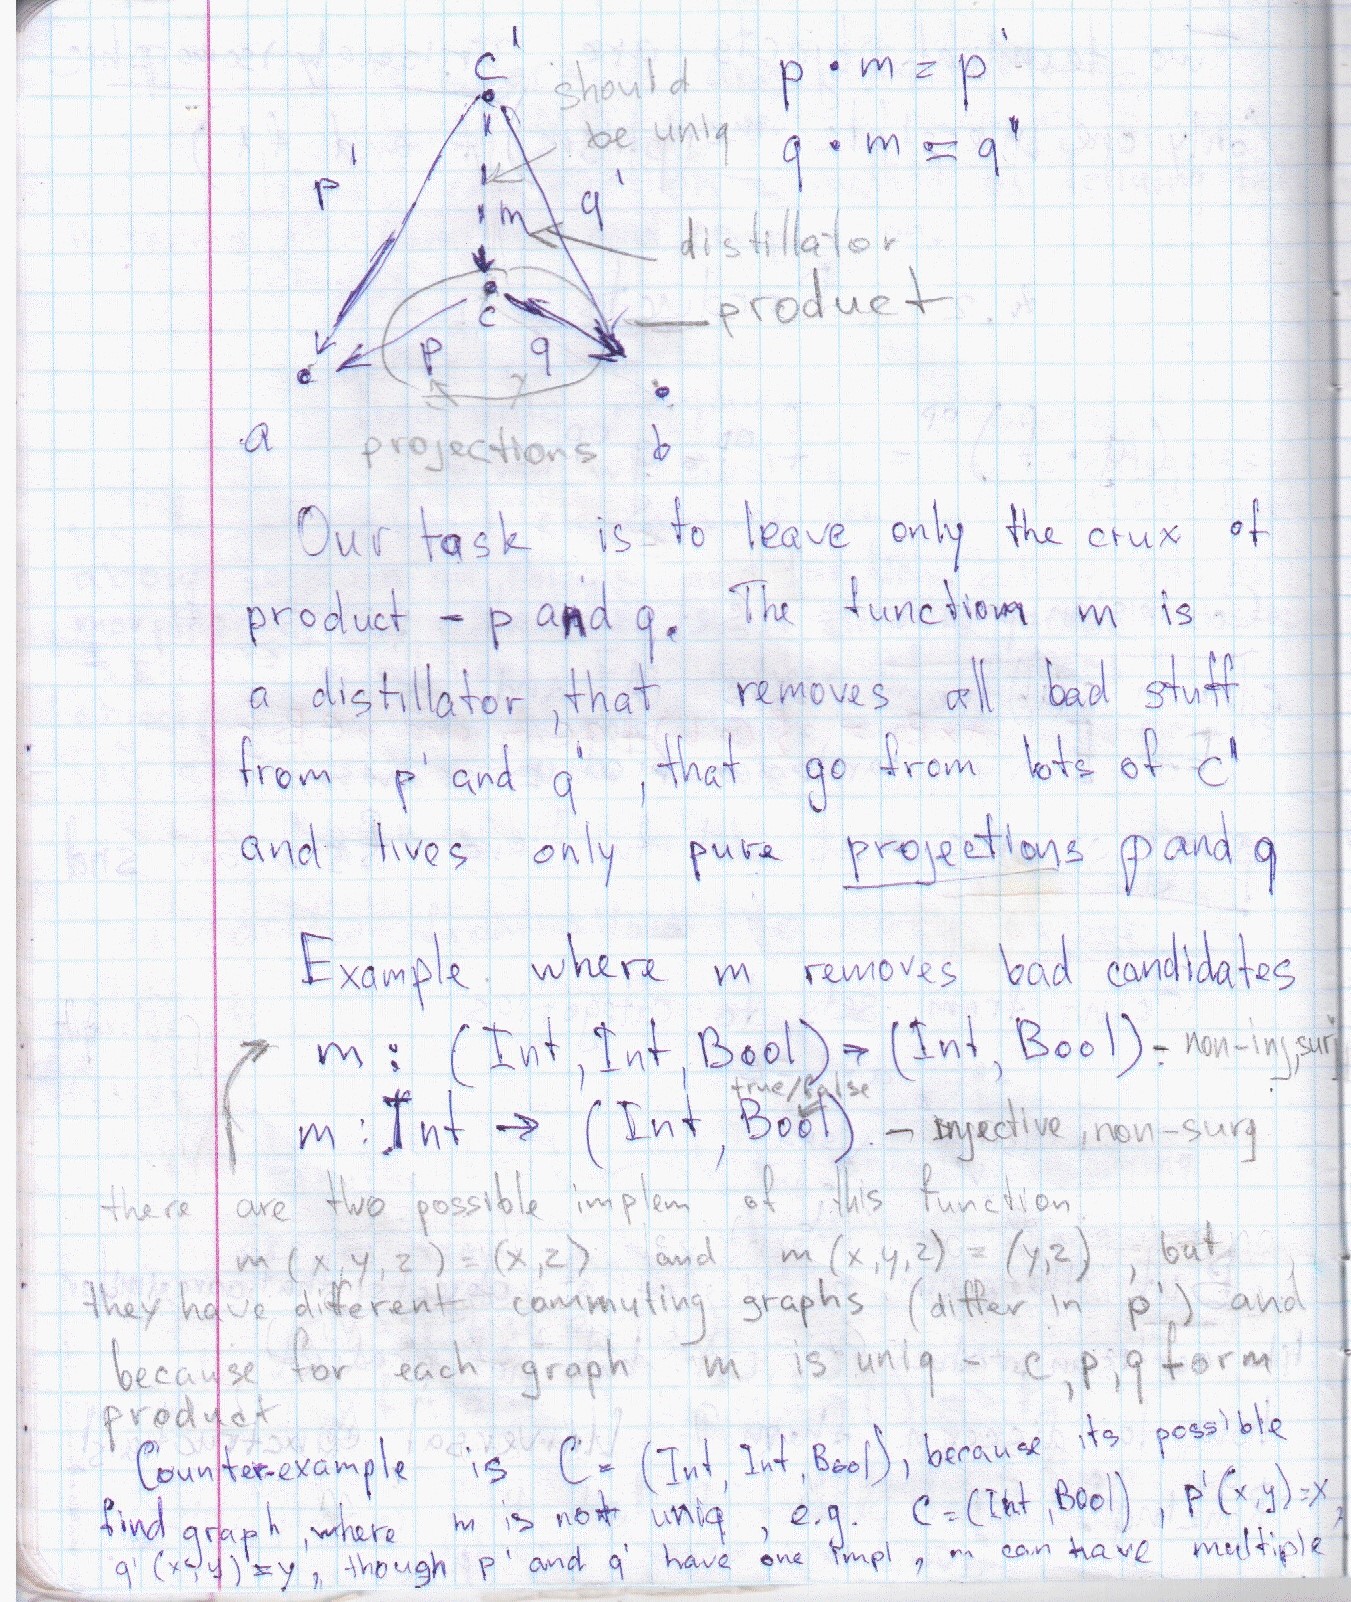 c'
should
be uniq
p • m = p'
q • m = q'
p'
q'
m
distillator
product
c
p q
a
projections
b
Our task is to leave only the crux of
product - p and q. The function m is
a distillator, that removes all bad stuff
from p' and q', that go from lots of c'
and lives only pure projections p and q
Example where m removes bad candidates
m : (Int, Int, Bool) → (Int, Bool) - non-inj, surj
true/false
m : Int → (Int, Bool). - injective, non-surg
there are two possible implem of this function
m(x,y,z) = (x,z) and m(x,y,z) = (y,z), but
they have different commuting graphs (differ in p') and
because for each graph m is uniq - c, p, q form
product
Counter-example is C = (Int, Int, Bool), because its possible
find graph, where m is not uniq, e.g. C = (Int, Bool), p'(x,y)=x,
q'(x,y)=y, though p' and q' have one impl, m can have multiple